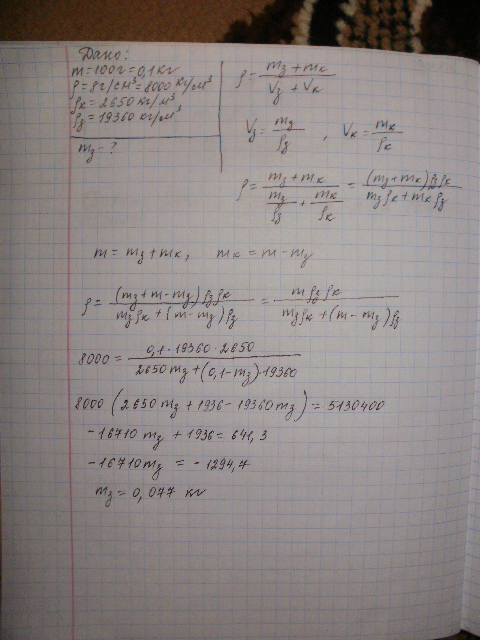 Дано:
m = 100г = 0,1 кг
ρ = 8г/см³ = 8000 кг/м³
ρк = 2650 кг/м³
ρз = 19360 кг/м³
mз - ?
ρ = (mз + mк) / (Vз + Vк)
Vз = mз/ρз , Vк = mк/ρк
ρ = (mз + mк) / (mз/ρз + mк/ρк) = (mз + mк) ρз ρк / (mз ρк + mк ρз)
m = mз + mк, mк = m - mз
ρ = (mз + m - mз) ρз ρк / (mз ρк + (m - mз) ρз) = m ρз ρк / (mз ρк + (m - mз) ρз)
8000 = 0,1 · 19360 · 2650 / (2650 mз + (0,1 - mз) · 19360)
8000 (2650 mз + 1936 - 19360 mз) = 5130400
-16710 mз + 1936 = 641,3
-16710 mз = - 1294,7
mз = 0,077 кг